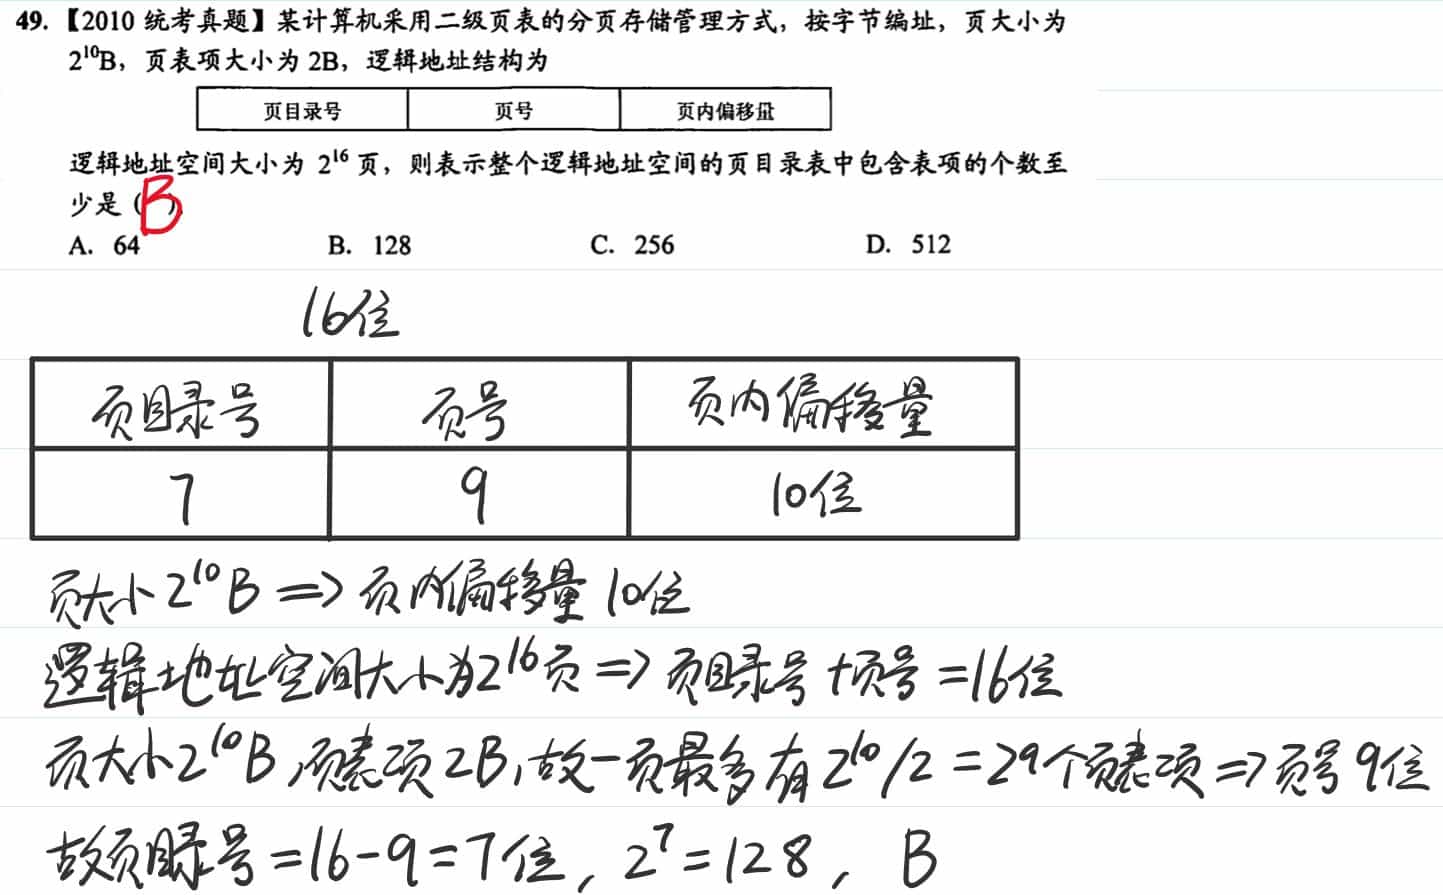 49.【2010 统考真题】某计算机采用二级页表的分页存储管理方式，按字节编址，页大小为
2¹⁰B，页表项大小为 2B，逻辑地址结构为
页目录号 页号 页内偏移量
逻辑地址空间大小为 2¹⁶ 页，则表示整个逻辑地址空间的页目录表中包含表项的个数至
少是（B）
A. 64 B. 128 C. 256 D. 512
16位
页目录号 页号 页内偏移量
7 9 10位
页大小2¹⁰B => 页内偏移量 10位
逻辑地址空间大小为2¹⁶页 => 页目录号+页号=16位
页大小2¹⁰B，页表项2B，故一页最多有2¹⁰/2=2⁹个页表项=>页号9位
故页目录号=16-9=7位，2⁷=128，B